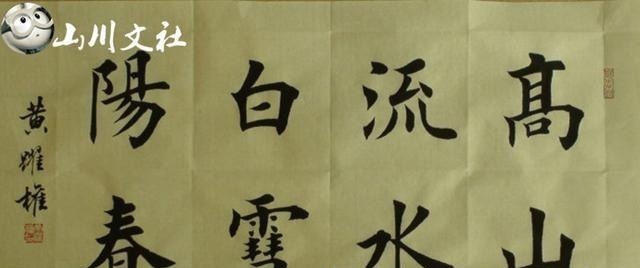 山川文社
髙山
流水
白雪
陽春
黄耀權